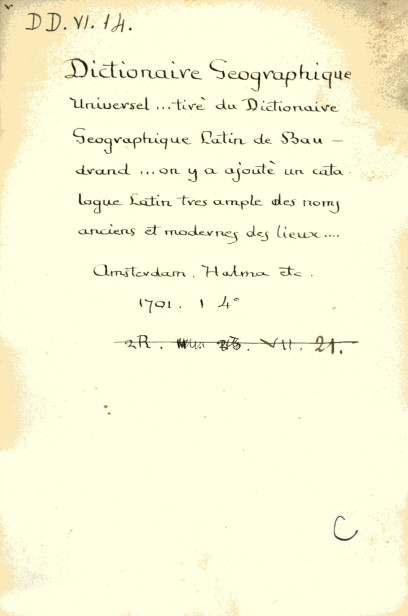 DD. VI. 14.
Dictionaire Geographique
Universel ... tirè du Dictionaire
Geographique Latin de Bau –
drand ... on y a ajoutè un cata-
logue Latin tres ample des noms
anciens et modernes des lieux....
Amsterdam. Halma etc.
1701. 1 4°
VII. 21.
C